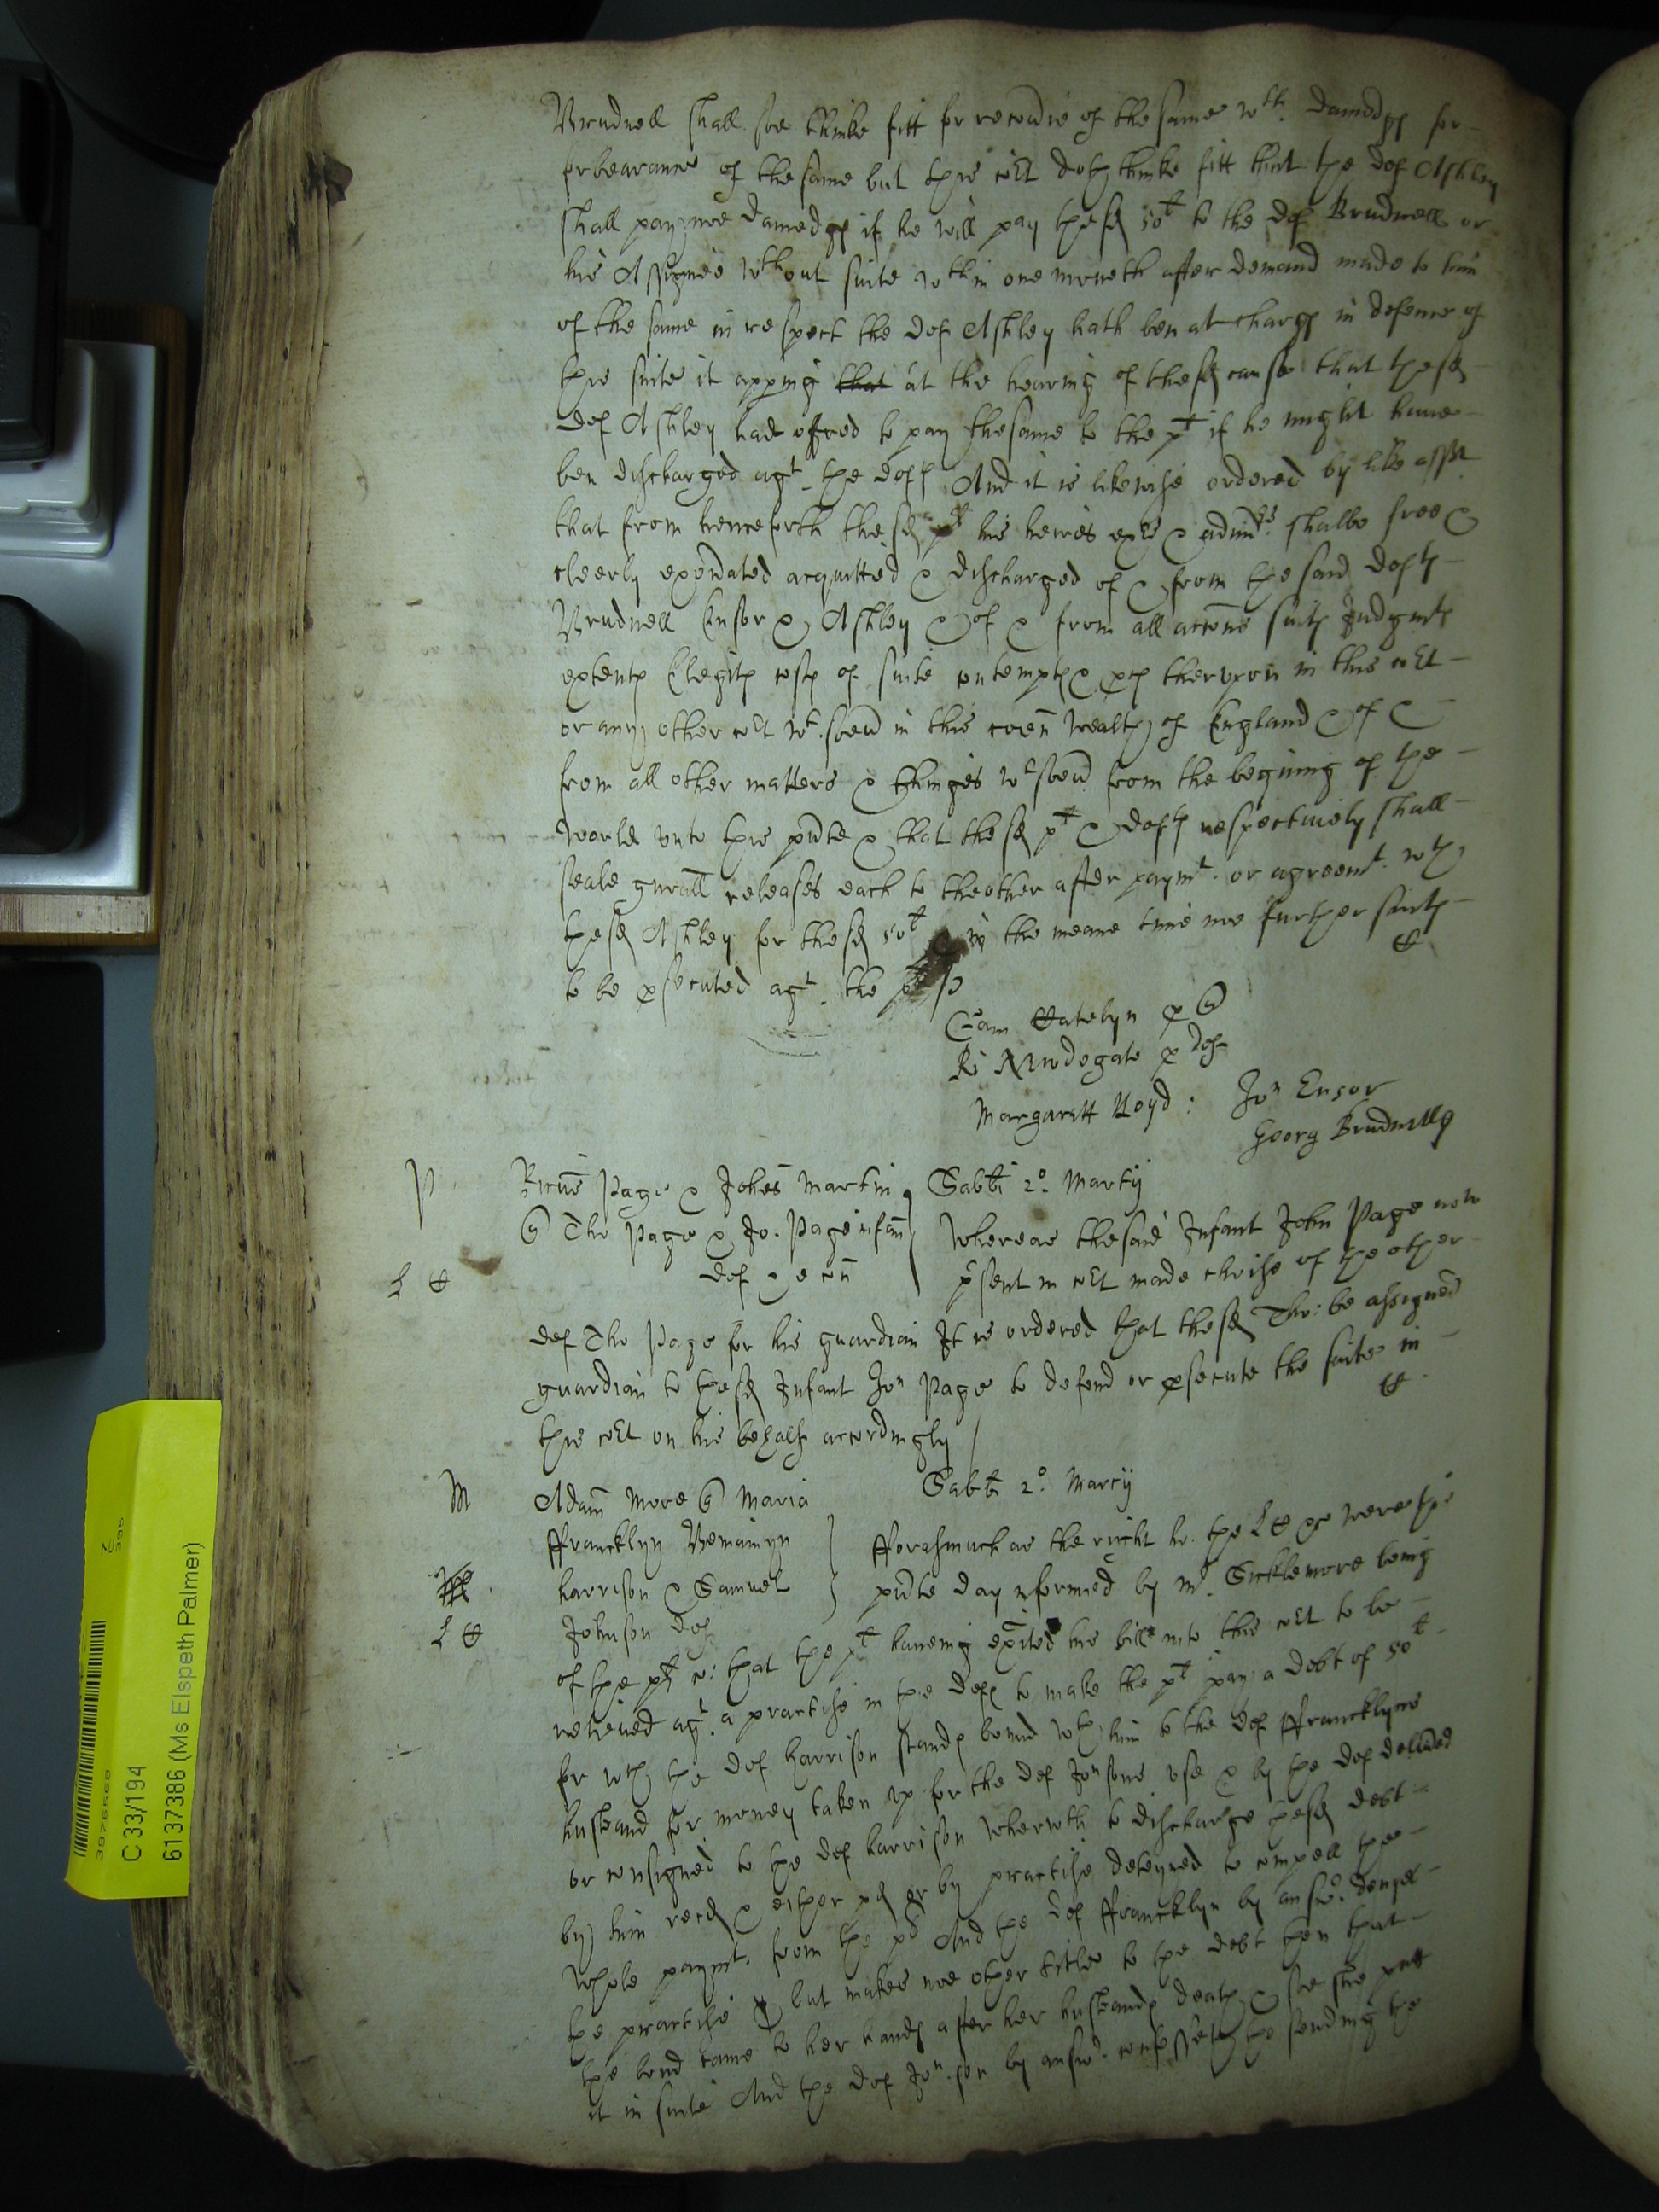 Brudnell shall soe thinke fitt for recoverie of the same wth. damadges for
forbearance of the same but this Cort doth thinke fitt that the def Ashley
shall pay noe damadges if he will pay the sd 50l to the def Brudnell or
his Assignee wthout suite wthin one moneth after demand made to him
of the same in respect the def Ashley hath ben at charges in defence of
this suite it apping that at the hearing of the sd cause that the sd
def Ashley had offred to pay the same to the pt if he might have
ben discharged agt the defts And it is likewise ordered by like asst
that from henceforth the sd pt his heires exrs & admrs. shalbe free &
cleerly exonerated acquitted & discharged of & from the said defts
Brudnell Ensor & Ashley & of & from all accons suits Judgmts
extents Elegits costs of suite contempts & pces thereupon in this Cort
or any other Cort wt.soevr in this comon wealth of England & of &
from all other matters & thinges wtsoevr from the begining of the
world unto this pnte & that the sd pt & defts respectively shall
seale gnrall releases each to the other after paymt. or agreemt. wth
the sd Ashley for the sd 50l & in the meane time noe further suits
to be psecuted agt. the pt
Ri Newdegate p def
Margarett Lloyd : Jon Ensor
Georg Brudnell
P
Page & Johes Martin Sabti 2o. Martij
Tho Page & Jo. Page infam Whereas the said Infant John Page now
def psent in Cort made choise of the other
def Tho Page for his guardian It is ordered that the sd Tho: be assigned
guardian to the sd Infant Jon Page to defend or psecute the suite in
this Cort on his behalfe accordingly
M Adam More Maria Sabti 2o. Marcij
ffrancklyn Beniamyn fforasmuch as the right ho. the were this
harrison & Samuel pnte day informed by Mr. Sicklemore being
Johnson def
of the pts co: that the pt haveing exited his bill into this Cort to be
releived agt. a practise in the defts to make the pt pay a debt of 50l
for wch the def harrison stands bound wth him to the def ffrancklyns
husband for money taken up for the def Jonsons use & by the def delivred
or consigned to the def harrison wherwth to discharge the sd debt
by him recd & either pd or by practise deteyned to compell the
whole paymt. from the pt And the def ffrancklyn by answr. denyes
the practise but makes noe other title to the debt then that
the bond came to her hands after her husbands death & soe she putt
it in suite And the def Jon.son by answr. confesseth the sending the
C 33/194
61373386 (Ms Elspeth Palmer)